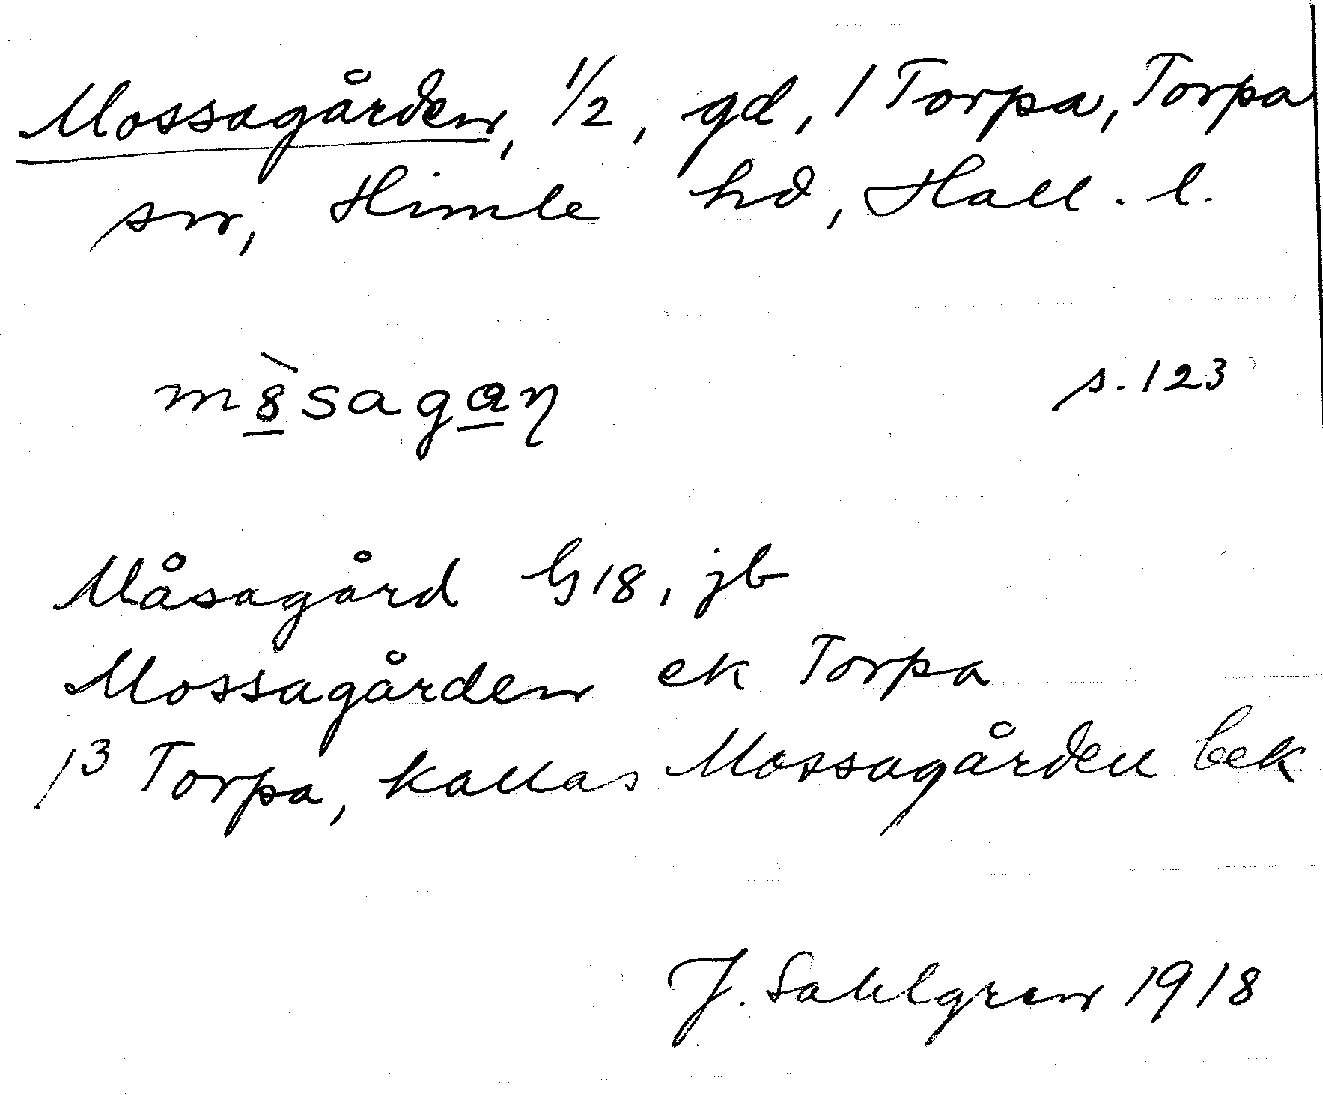 Mossagården, 1/2, gd, 1 Torpa, Torpa
sn, Himle hd, Hall. l.
mò̲saga̲n s. 123
Måsagård G18, jb
Mossagården ek Torpa
1³ Torpa, kallas Mossagården bek
J. Sahlgren 1918